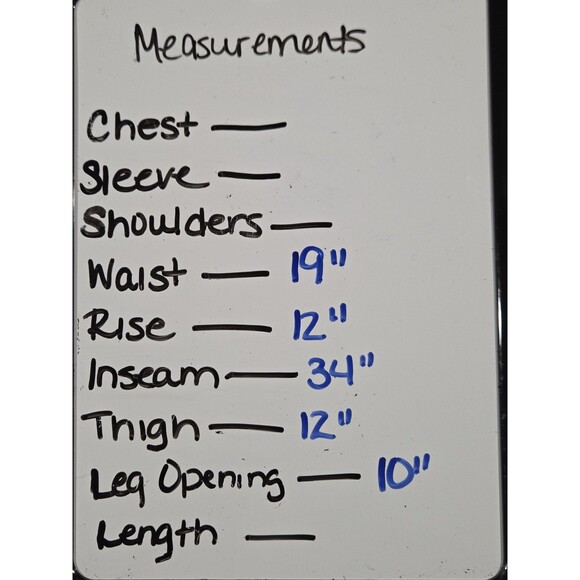 Measurements
Chest —
Sleeve —
Shoulders —
Waist — 19"
Rise — 12"
Inseam — 34"
Thigh — 12"
Leg Opening — 10"
Length —